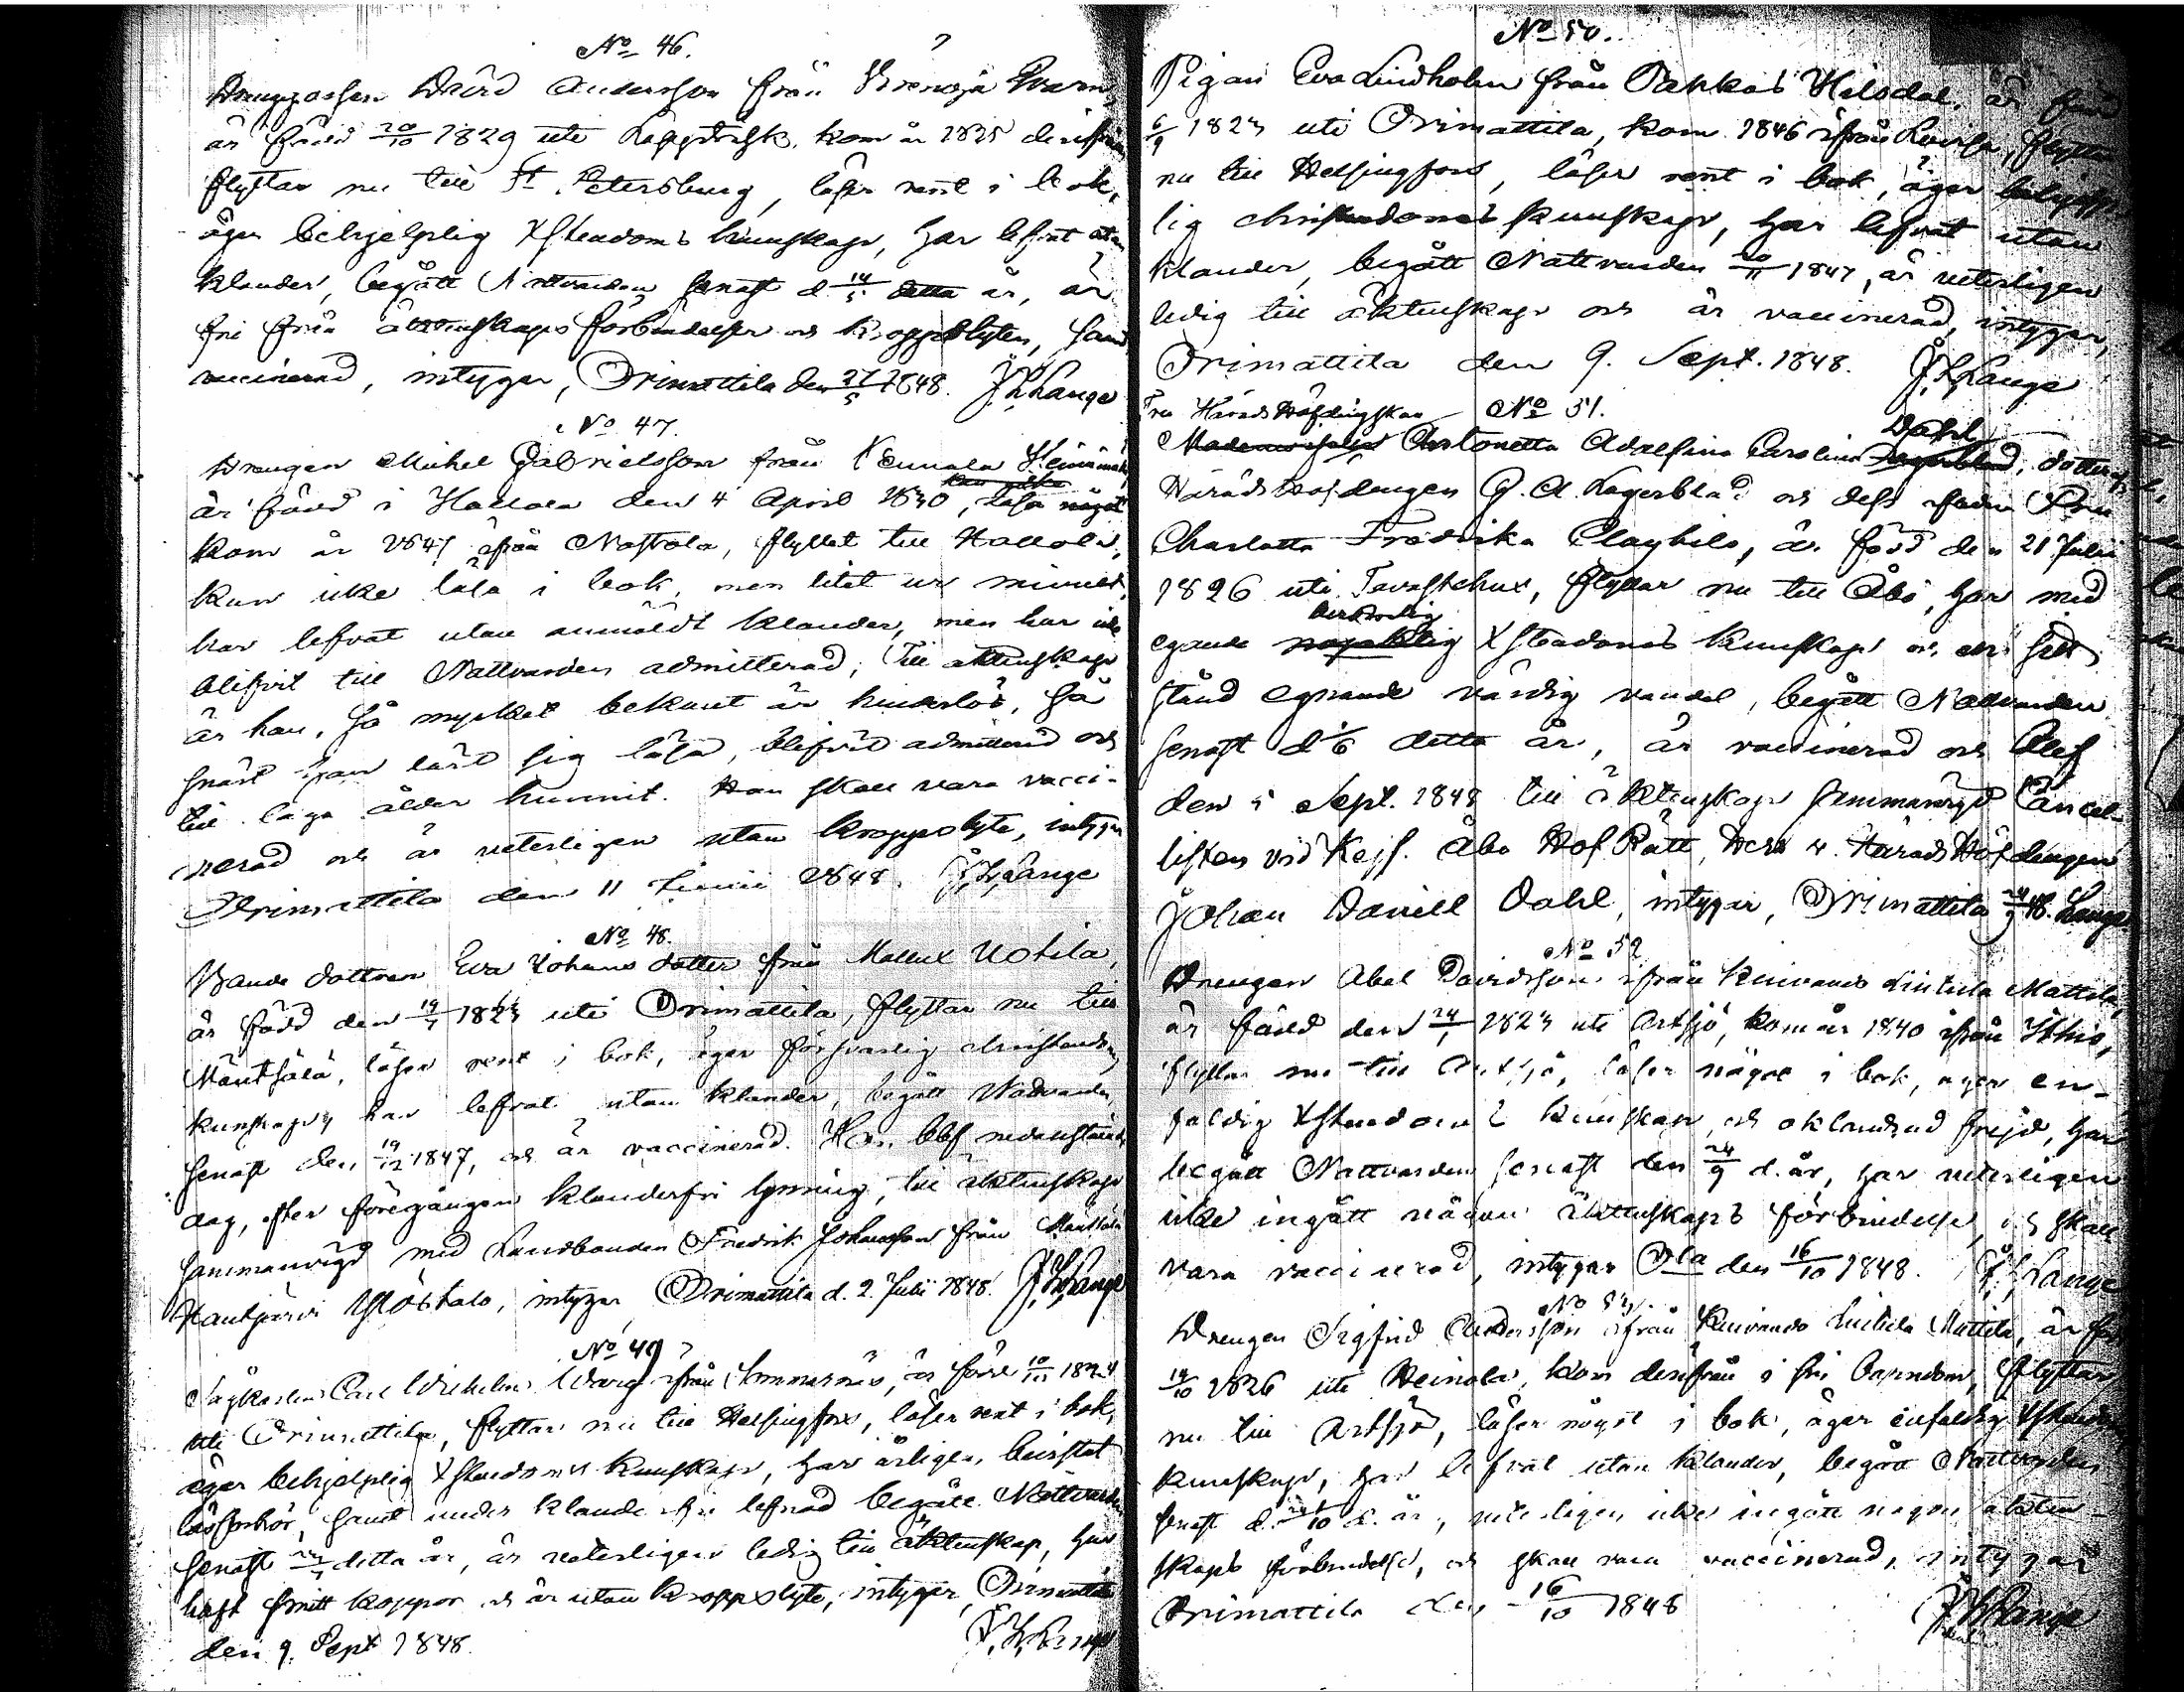 No 46.
Drenggossen David Andersson från
är född 20/10 1829 uti kom år 1835 derifrån
flyttar nu till St. Petersburg, läser rent i bok,
äger behjelplig Xstendoms kunskap, har lefvat utan
klander, begått Nattvarden senast d 14/5 detta år, är
fri från äktenskaps förbindelser och kroppslyten, samt
vaccinerad, intygar, Orimattila den 27/5 1848. Lange
No 47.
Drengen Michel Gabrielsson från Kennala
är född i Hollola den 4 April 1830, läsa något
kom år 1847 ifrån Nastola, flyttat till Hollola,
kan icke läsa i bok, men litet ur minnet,
har lefvat utan anmäldt klander, men har icke
blifvit till Nattvarden admitterad; Till äktenskap
är han, så mycket bekant är hinderlös, så
snart han lärt sig läsa, blifvit admitterad och
till laga ålder hunnit. Han skall vara vacci-
nerad och är veterligen utan kroppslyte, intygar
Orimattila den 11 Junii 1848. Lange
No 48.
Bonde dottren Eva Johans dotter från Mallux Uotila,
är född den 19/7 1823 uti Orimattila, flyttar nu till
Mäntsälä, läser rent i bok, äger försvarlig christendoms
kunskap, har lefvat utan klander, begått Nattvarden
senast den 19/12 1847, och är vaccinerad. Hon blef nedanstående
dag, efter föregången klanderfri lysning, till äktenskap
sammanvigd med Landbonden Fredrik Johansson från Mäntsälä
intygar Orimattila d. 2 Julii 1848. Lange
No 49
Carl Wilhelm Warg ifrån Sommarnäs, är född 10/10 1824
uti Orimattila, flyttar nu till Helsingfors, läser rent i bok,
äger behjelplig Xstendoms kunskap, har årligen bevistat
läsförhör, samt under klanderfri lefnad begått Nattvarden
senast detta år, är veterligen ledig till äktenskap, har
haft smitt koppor och är utan kroppslyte, intygar, Orimattila
den 9. Sept 1848.
No 50.
Pigan Eva Lindholm från Pakkas Hilsdal, är född
6/9 1823 uti Orimattila, kom 1846 ifrån Lovisa, flyttar
nu till Helsingfors, läser rent i bok, äger behjelp-
lig christendoms kunskap, har lefvat utan
klander, begått Nattvarden 20/11 1847, är veterligen
ledig till äktenskap och är vaccinerad, intygar,
Orimattila den 9. Sept. 1848. Lange
Fru Härads Höfdingskan No 51.
Dahl
Mademoiselle Antonetta Adelfina Carolina Lagerblad, dotter af
Härads Höfdingen G. A. Lagerblad och dess Fru
Charlotta Fredrika Clayhils, är född den 21 Julii
1826 uti Tavastehus, flyttar nu till Åbo, har med
berömlig
egande nojaktig Xstendoms kunskap och ett sitt
stånd egnande värdig vandel, begått Nattvarden
senast d 1/6 detta år, är vaccinerad och blef
den 5 Sept. 1848 till äktenskap sammanvigd Cancel-
listen vid Kejs. Åbo Hof Rätt, Herr v. Härads Höfdingen
Johan Daniel Dahl, intygar, Orimattila 48. Lange
No 52
Drengen Abel Davidsson ifrån Kuivando Liukula Mattila,
är född den 24/1 1823 uti Artsjö, kom år 1840 ifrån Itthis,
flyttar nu till Artsjö, läser något i bok, äger en-
faldig Xstendoms kunskap, och oklandrad frejd, har
begått Nattvarden senast den 24/9 d. år, har veterligen
icke ingått någon äktenskaps förbindelse, och skall
vara vaccinerad, intygar O:la den 16/10 1848. Lange
No 53.
Drengen Sigfrid Andersson ifrån Kuivando Liukula Mattila, är född
19/10 1826 uti Heinola, kom derifrån i sin barndom, flyttar
nu till Artsjö, läser något i bok, äger enfaldig Xstendoms
kunskap, har lefvat utan klander, begått Nattvarden
senast d. d. år, veterligen icke ingått någon äkten-
skaps förbindelse, och skall vara vaccinerad, intygar
Orimattila den 16/10 1848
Lange